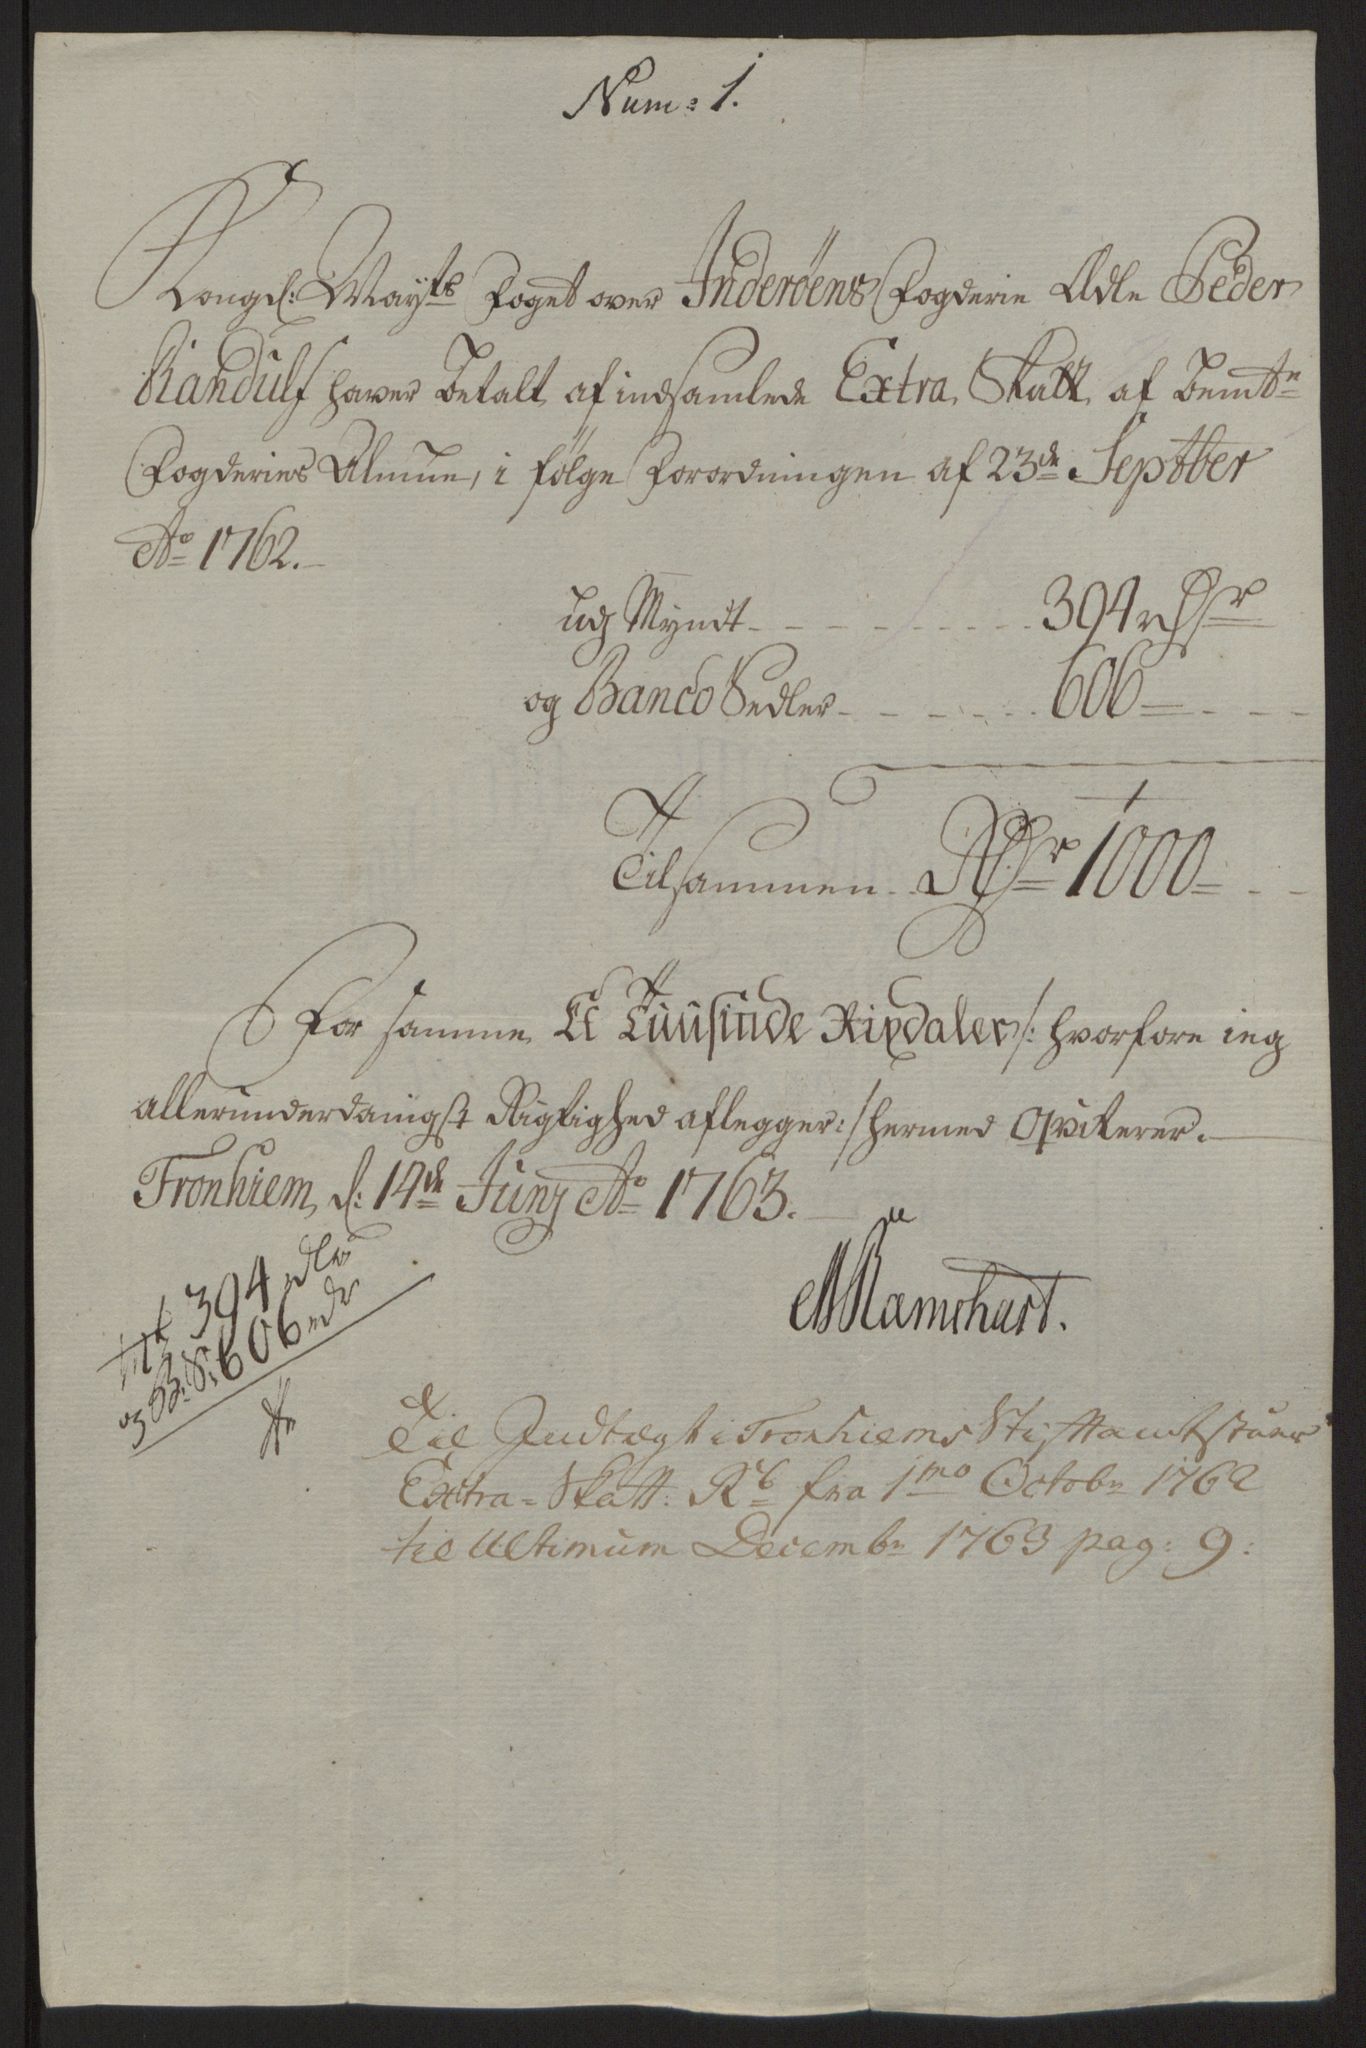 Num: 1.
Kongel: Mayts Foget over Inderöens Fogderie Adle Peder
Randulf haver betalt af indsamlede Extra Skatt af bemte
Fogderies Almue, i fölge Forordningen af 23de Septber
Ao 1762.
udj Myndt - - - - - - - - 394 rdr
og Banco Sedler - - - - - 606 - - -
Tilsammen - Rdr 1000 - - -
For samme Et Tuusinde Rixdaler /: hvorfore ieg
allerunderdanigst Rigtighed aflegger :/ hermed Qviterer.
Tronhiem, d: 14de Junj Ao 1763.
MRamshart.
Myt 394 rdlr
og B: S: 606 rdr
Til Indtægt i Tronhiems Stiftamtstues
Extra-Skatt: R. fra 1mo Octobr 1762
til Ultimum Decembr 1763 pag: 9: